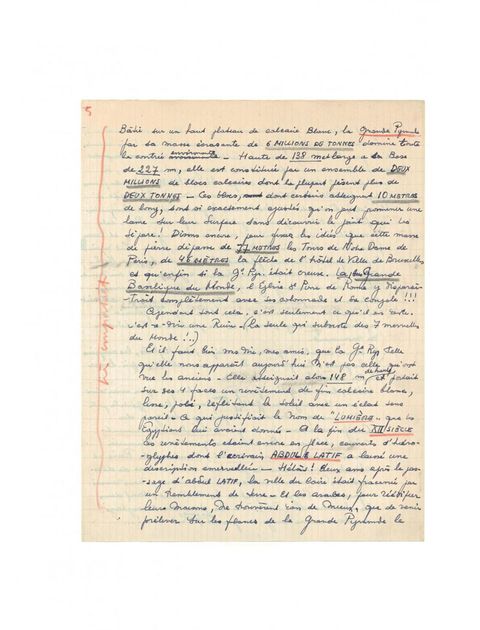 5
Bâtie sur un haut plateau de calcaire Blanc, la Grande Pyramide
par sa masse écrasante de 6 MILLIONS DE TONNES domine toute
la contrée environnante - Haute de 138 m et large à sa Base
de 227 m, elle est constituée par un ensemble de DEUX
MILLIONS de blocs calcaires dont la plupart pèsent plus de
DEUX TONNES - Ces blocs, dont certains atteignent 10 METRES
de long, sont si exactement ajustés qu'on peut promener une
lame sur leur surface sans découvrir le joint qui les
sépare! Disons encore, pour fixer les idées que cette masse
de pierre dépasse de 77 METRES les Tours de Notre Dame de
Paris, de 48 METRES la flèche de l'Hôtel de Ville de Bruxelles
et qu'enfin si la Gde Pyr. était creuse. La plus Grande
Basilique du Monde, l'Eglise St Pierre de Rome y disparaî-
-trait complètement avec ses colonnades et sa coupole!!!
Cependant tout cela, c'est seulement ce qu'il en reste.
c'est-à-dire une Ruine. (la seule qui subsiste des 7 merveilles
du Monde!..)
Et il faut bien me dire, mes amis, que la Gde Pyr telle
qu'elle nous apparaît aujourd'hui n'est pas celle qu'ont
vue les anciens - Elle atteignait alors 148 m de haut et portait
sur ses 4 faces un revêtement de fin calcaire blanc,
lisse, poli, reflétant le soleil avec un éclat sans
pareil - Ce qui justifiait le nom de "LUMIÈRE" que les
Egyptiens lui avaient donné - A la fin du XIIe SIÈCLE
ces revêtements étaient encore en place, couverts d'hiéro-
-glyphes dont l'écrivain ABDUL LATIF a laissé une
description émerveillée - Hélas! Deux ans après le pas-
-sage d'Abdul LATIF, la ville du Caire était ravagée par
un tremblement de terre - Et les arabes, pour réédifier
leurs maisons, ne trouvèrent rien de mieux, que de venir
prélever sur les flancs de la Grande Pyramide le